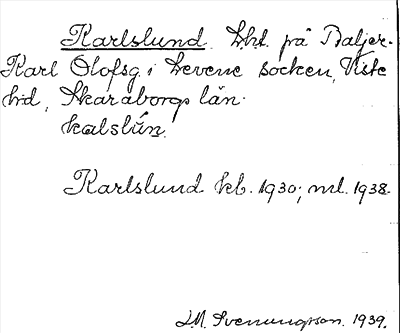 Karlslund. Lht. på Baljer-
Karl Olofsg. i Levene socken, Viste
hd, Skaraborgs län.
kalslún.
Karlslund kb. 1930; ml. 1938.
J.M. Svenungsson. 1939.